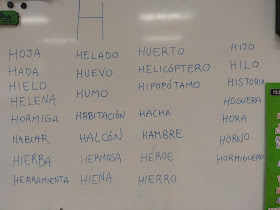 H
HOJA HELADO HUERTO HIJO
HADA HUEVO HELICÓPTERO HILO
HIELO HUMO HIPOPÓTAMO HISTORIA
HELENA HOGUERA
HORMIGA HABITACIÓN HACHA HORA
HABLAR HALCÓN HAMBRE HORNO
HIERBA HERMOSA HÉROE HORMIGUERO
HERRAMIENTA HIENA HIERRO